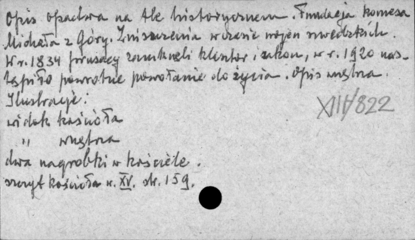 Opis opactwa na tle historycznem. Fundacja komesa
Michała z Góry. Zniszczenia w czasie wojen szwedzkich.
W r. 1834 prusacy zamknęli klasztor i zakon, w r. 1920 nas-
tąpiło powrotne powołanie do życia. Opis wnętrza.
Ilustracje:
widok kościoła
" wnętrza
dwa nagrobki w kościele.
szczyt kościoła w. XV. str. 159.
XIII/822